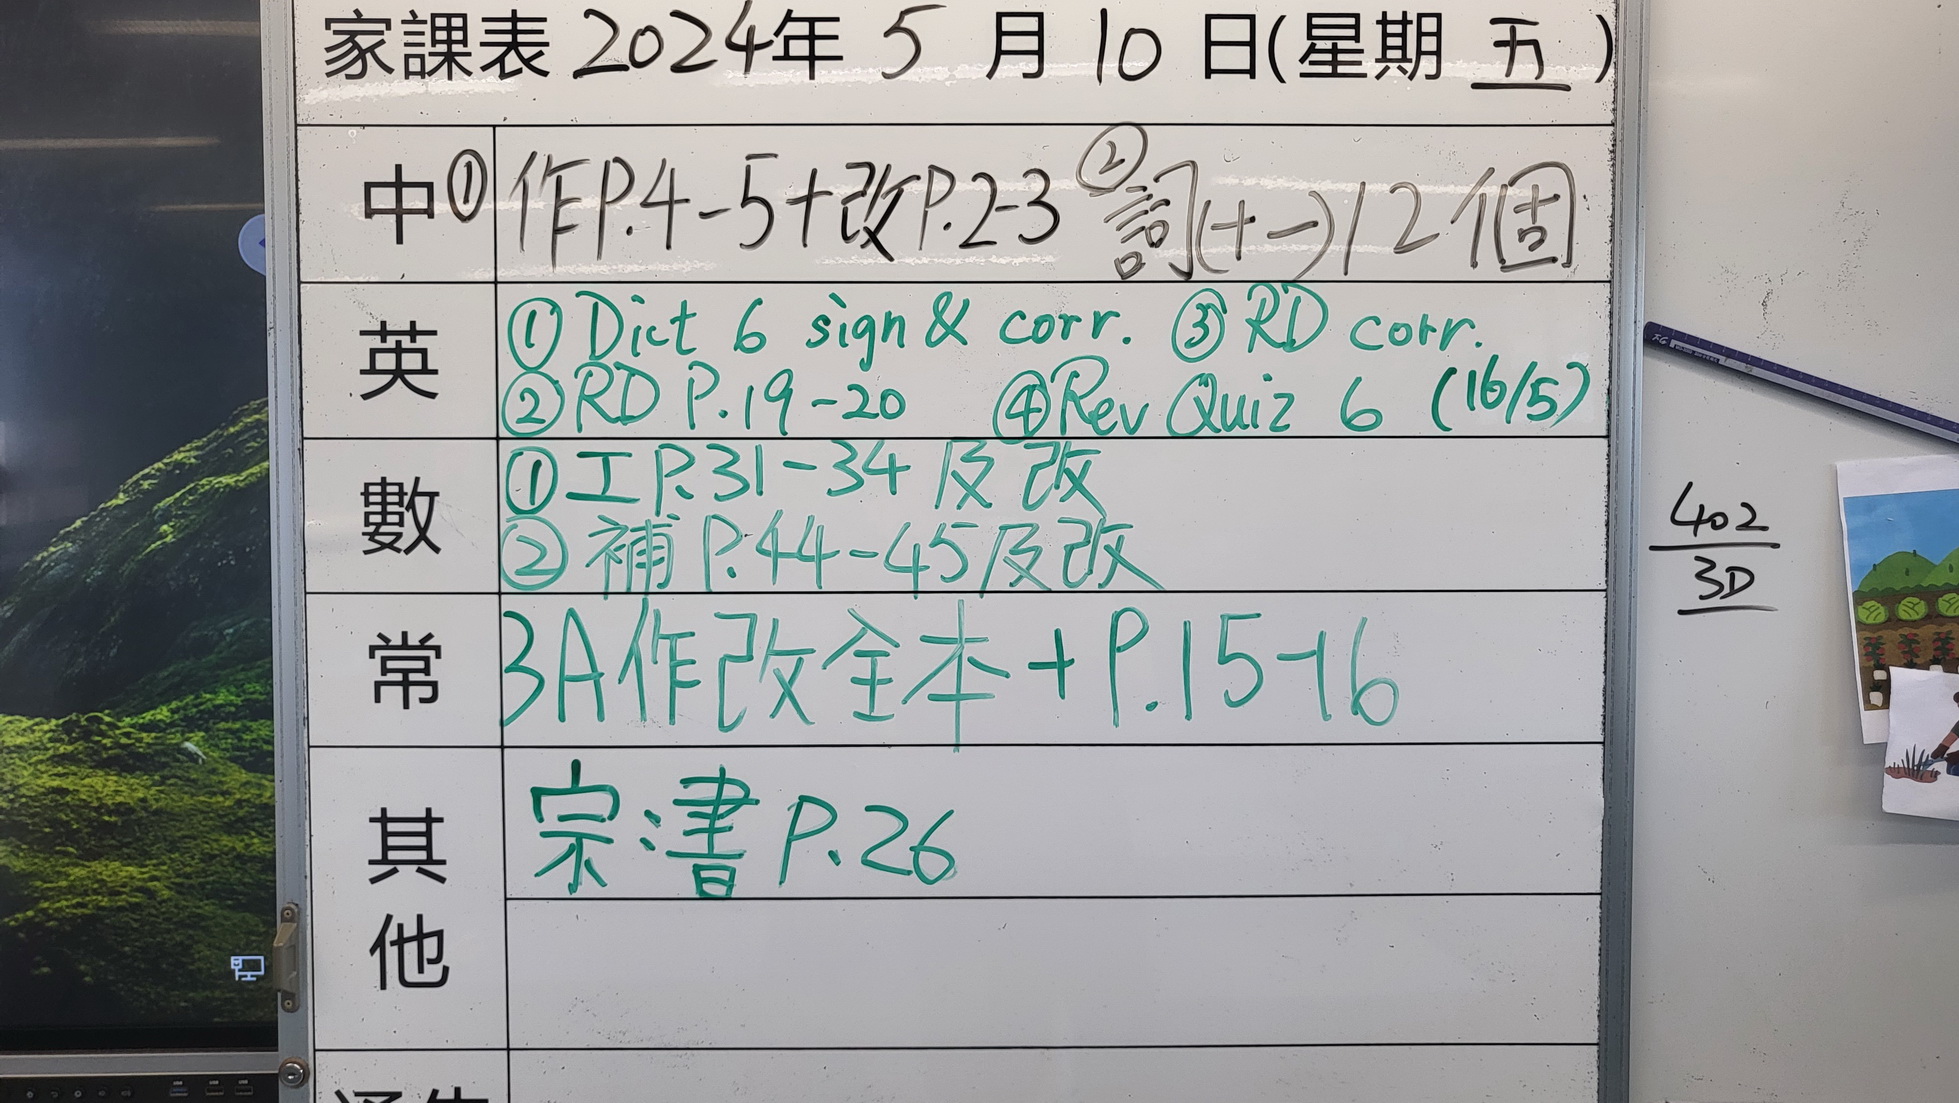 家課表 2024年 5 月 10 日(星期 五 )
中 ① 作P.4-5+改P.2-3 ② 詞(十一)12個
英 ① Dict 6 sign & corr. ③ RD corr.
② RD P.19-20 ④ Rev Quiz 6 (16/5)
數 ① 工P.31-34 及改
② 補 P.44-45及改
常 3A作改全本+P.15-16
其他 宗:書 P.26
402
3D